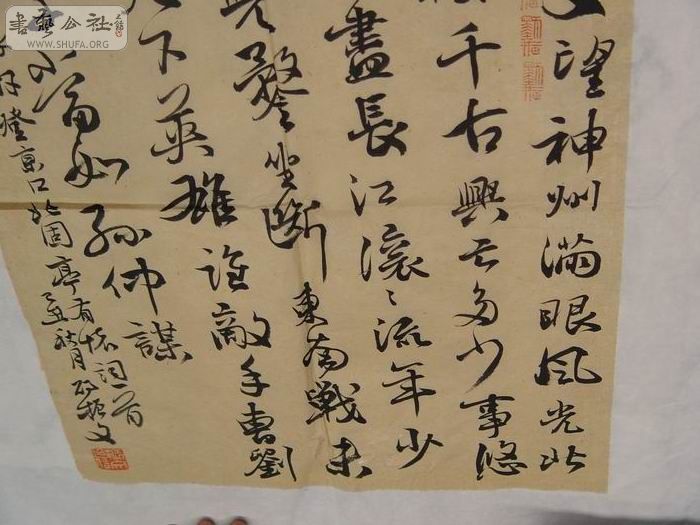 書藝公社
WWW.SHUFA.ORG
望神州滿眼風光北
千古興亡多少事悠
盡長江滾〻流年少
兜鍪坐斷東南戰未
下英雄誰敵手曹劉
子當如孫仲謀
登京口北固亭有懷詞一首
秋月 振文